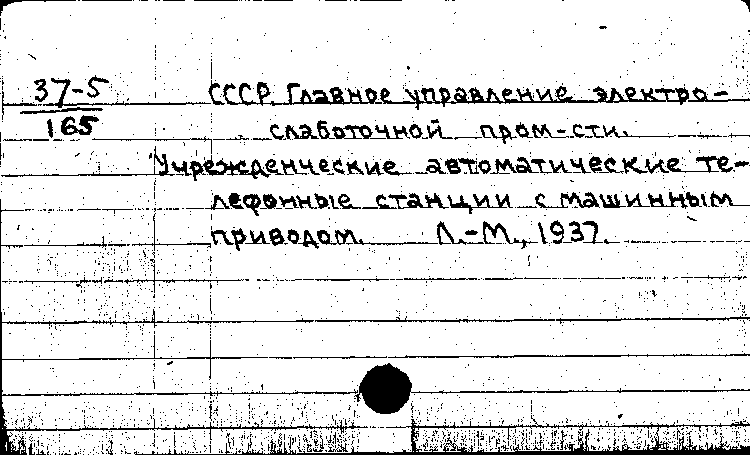 37-5
165
СССР. Главное управление электро-
слаботочной пром-сти.
Учрежденческие автоматические те-
лефонные станции с машинным
приводом. Л.-М., 1937.